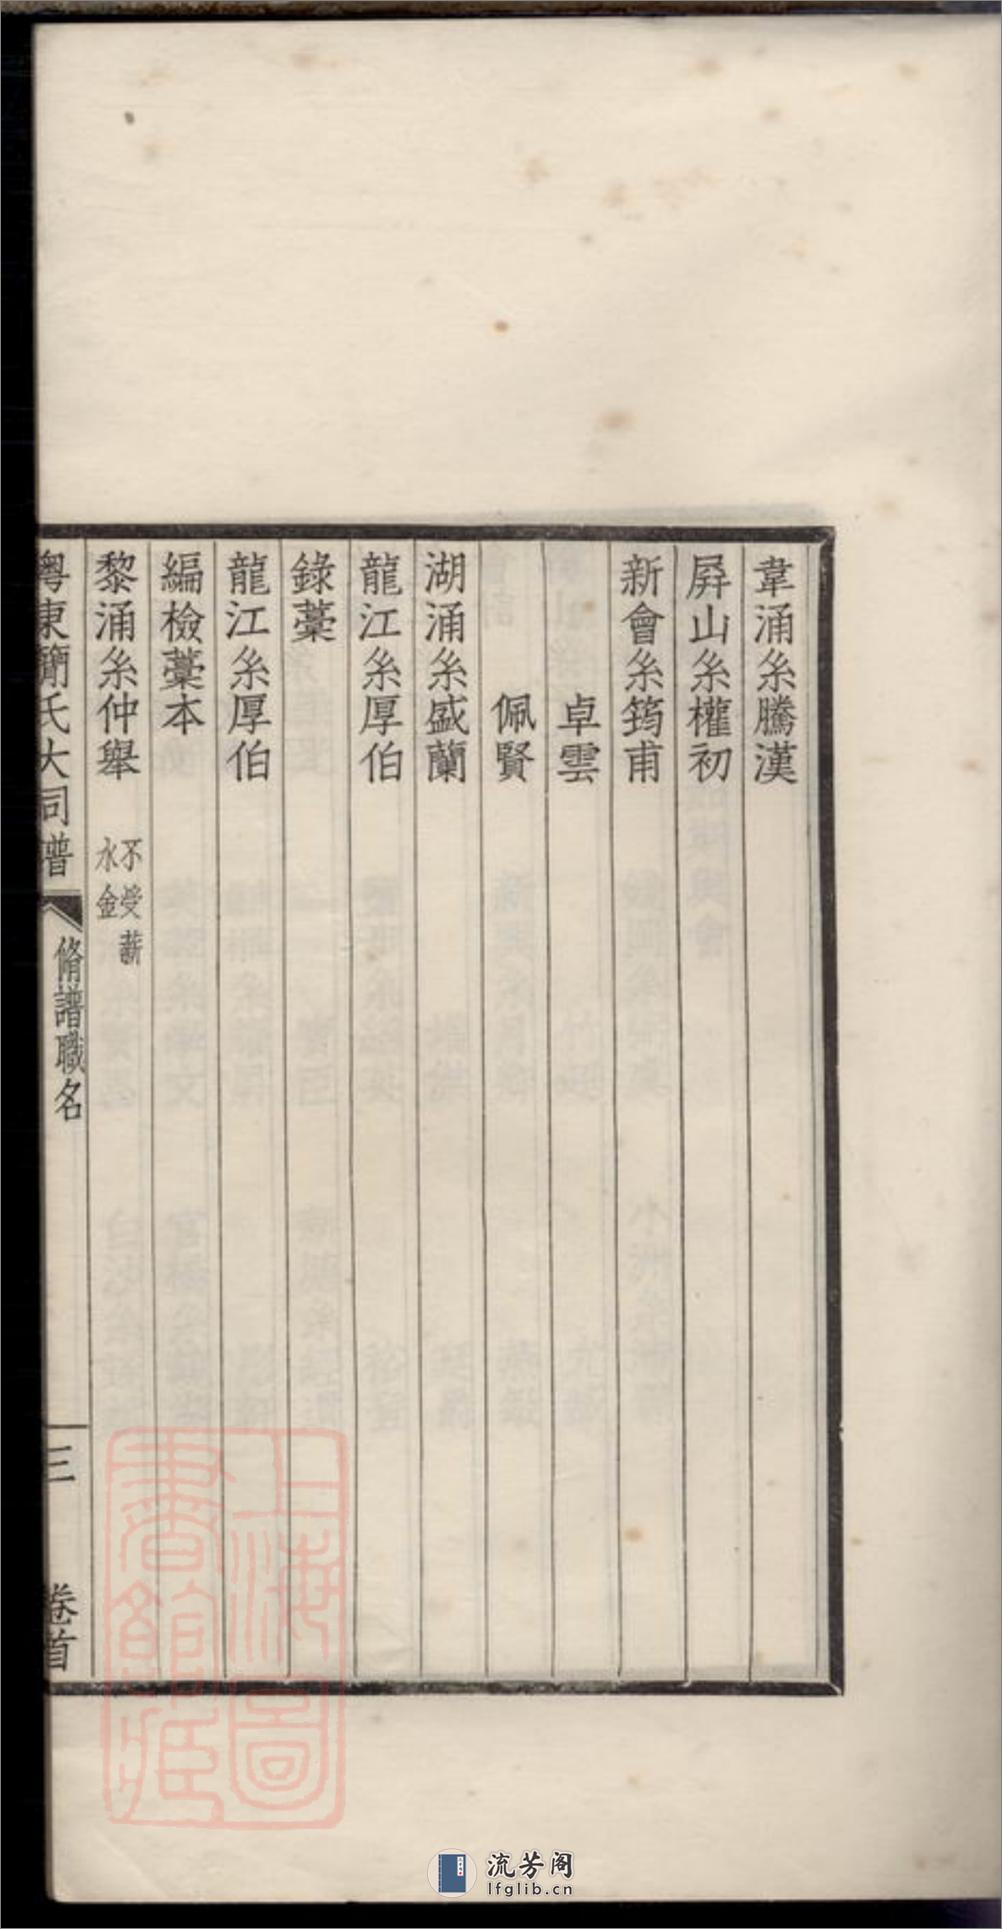 韋涌糸騰漢
屏山糸權初
新會糸筠甫
卓雲
佩賢
湖涌糸盛蘭
龍江糸厚伯
錄藁
龍江糸厚伯
編檢藁本
黎涌糸仲舉 不受薪
水金
粵東簡氏大同譜
脩譜職名
三
卷首
上海圖
書館藏
流芳阁
lfglib.cn